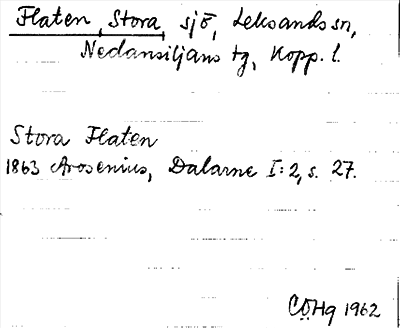 Flaten, Stora, sjö, Leksands sn,
Nedansiljans tg, Kopp. l.
Stora Flaten
1863 Arosenius, Dalarne I:2, s. 27.
CÖHg 1962